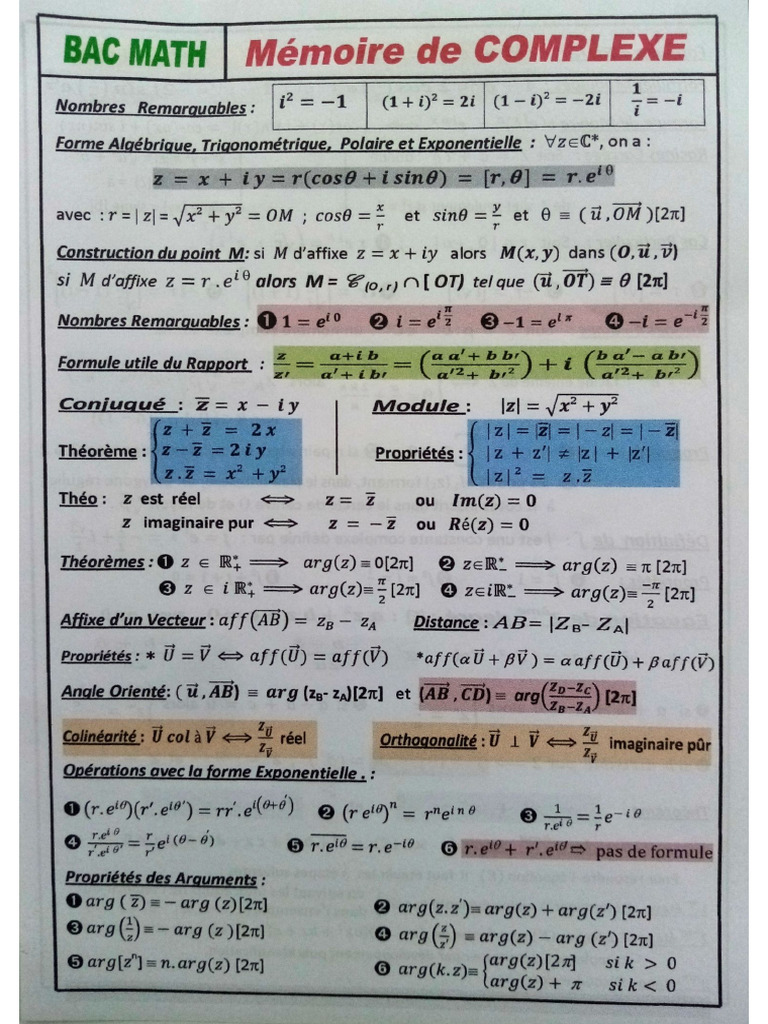 BAC MATH Mémoire de COMPLEXE
Nombres Remarquables : i² = −1 (1 + i)² = 2i (1 − i)² = −2i 1/i = −i
Forme Algébrique, Trigonométrique, Polaire et Exponentielle : ∀z∈ℂ*, on a :
z = x + i y = r(cosθ + i sinθ) = [r, θ] = r. e^{i θ}
avec : r = | z| = √(x² + y²) = OM ; cosθ = x/r et sinθ = y/r et θ ≡ (u⃗ , OM⃗ )[2π]
Construction du point M: si M d'affixe z = x + iy alors M(x, y) dans (O, u⃗, v⃗)
si M d'affixe z = r . e^{i θ} alors M = 𝒞(O, r) ∩ [ OT) tel que (u⃗ , OT⃗) ≡ θ [2π]
Nombres Remarquables : ❶ 1 = e^{i 0} ❷ i = e^{i π/2} ❸ −1 = e^{i π} ❹ −i = e^{−i π/2}
Formule utile du Rapport : z/z′ = (a+i b)/(a′+ i b′) = ((a a′+ b b′)/(a′²+ b′²)) + i ((b a′− a b′)/(a′²+ b′²))
Conjugué : z̅ = x − i y Module : |z| = √(x² + y²)
Théorème : { z + z̅ = 2 x
z − z̅ = 2 i y
z . z̅ = x² + y²
Propriétés : { | z | = |z̅| = | − z| = | − z̅|
| z + z′| ≠ |z| + |z′|
| z |² = z . z̅
Théo : z est réel ⟺ z = z̅ ou Im(z) = 0
z imaginaire pur ⟺ z = − z̅ ou Ré(z) = 0
Théorèmes : ❶ z ∈ ℝ₊* ⟹ arg(z) ≡ 0[2π] ❷ z∈ℝ₋* ⟹ arg(z) ≡ π [2π]
❸ z ∈ i ℝ₊* ⟹ arg(z)≡ π/2 [2π] ❹ z∈iℝ₋* ⟹ arg(z)≡ −π/2 [2π]
Affixe d'un Vecteur : aff(AB⃗) = z_B − z_A Distance : AB= |Z_B− Z_A|
Propriétés : * U⃗ = V⃗ ⟺ aff(U⃗) = aff(V⃗) *aff(α U⃗ + βV⃗ ) = α aff(U⃗) + β aff(V⃗)
Angle Orienté: ( u⃗ , AB⃗) ≡ arg (z_B- z_A)[2π] et (AB⃗ , CD⃗) ≡ arg((Z_D−Z_C)/(Z_B−Z_A)) [2π]
Colinéarité : U⃗ col à V⃗ ⟺ Z_U⃗/Z_V⃗ réel Orthogonalité : U⃗ ⊥ V⃗ ⟺ Z_U⃗/Z_V⃗ imaginaire pûr
Opérations avec la forme Exponentielle . :
❶ (r. e^{iθ})(r′. e^{iθ′}) = rr′. e^{i(θ+θ′)} ❷ (r e^{iθ})ⁿ = rⁿe^{i n θ} ❸ 1/(r.e^{i θ}) = 1/r e^{− i θ}
❹ r.e^{i θ}/r′.e^{i θ′} = r/r′ e^{i (θ− θ′)} ❺ r. e^{iθ}̅ = r. e^{−iθ} ❻ r. e^{iθ} + r′. e^{iθ′} ⇨ pas de formule
Propriétés des Arguments :
❶ arg ( z̅) ≡ − arg (z)[2π] ❷ arg(z. z′)≡ arg(z) + arg(z′) [2π]
❸ arg (1/z) ≡ − arg (z )[2π] ❹ arg (z/z′) ≡ arg(z) − arg (z′) [2π]
❺ arg[zⁿ] ≡ n. arg(z) [2π] ❻ arg(k. z)≡ { arg(z) [2π] si k > 0
arg(z) + π si k < 0